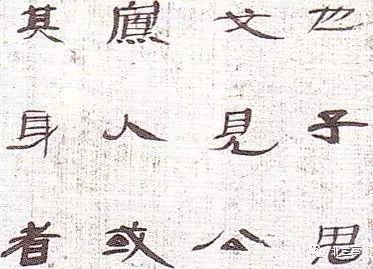 也子思
文見公
人或
其身者